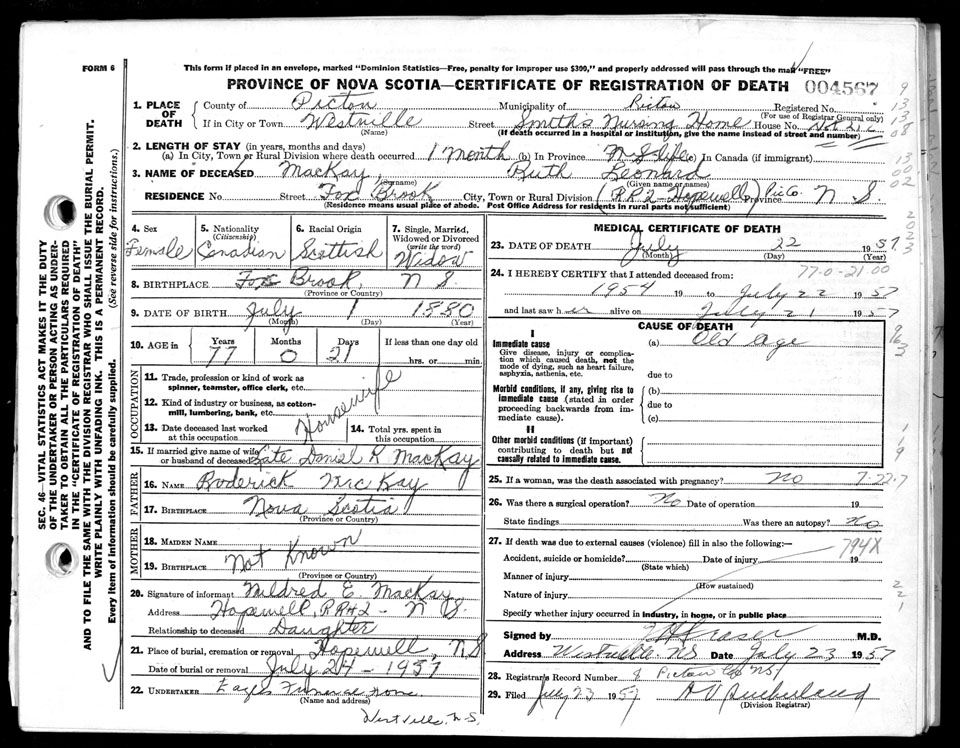 FORM 6
This form if placed in an envelope, marked "Dominion Statistics—Free, penalty for improper use $300," and properly addressed will pass through the mail "FREE"
PROVINCE OF NOVA SCOTIA—CERTIFICATE OF REGISTRATION OF DEATH 004567
1. PLACE OF DEATH
County of Pictou Municipality of Pictou Registered No.
(For use of Registrar General only)
If in City or Town Westville Street Smith's Nursing Home House No.
(Name) (If death occurred in a hospital or institution, give the name instead of street and number)
2. LENGTH OF STAY (in years, months and days)
(a) In City, Town or Rural Division where death occurred 1 month (b) In Province N S life (c) In Canada (if immigrant)
3. NAME OF DECEASED MacKay, Ruth Leonard
(Surname) (Given name or names)
RESIDENCE No. Street Fox Brook City, Town or Rural Division (RR 2 - Hopewell) Picto. Province N S.
(Residence means usual place of abode. Post Office Address for residents in rural parts not sufficient)
4. Sex Female
5. Nationality (Citizenship) Canadian
6. Racial Origin Scottish
7. Single, Married, Widowed or Divorced (write the word) Widow
8. BIRTHPLACE Fox Brook, N S.
(Province or Country)
9. DATE OF BIRTH July 1 1880
(Month) (Day) (Year)
10. AGE in Years Months Days If less than one day old
77 0 21 hrs. or min.
OCCUPATION
11. Trade, profession or kind of work as spinner, teamster, office clerk, etc.
12. Kind of industry or business, as cotton-mill, lumbering, bank, etc.
Housewife
13. Date deceased last worked at this occupation
14. Total yrs. spent in this occupation
15. If married give name of wife or husband of deceased Late Daniel R MacKay
FATHER
16. NAME Roderick MacKay
17. BIRTHPLACE Nova Scotia
(Province or Country)
MOTHER
18. MAIDEN NAME
19. BIRTHPLACE Not Known
(Province or Country)
20. Signature of informant Mildred E. MacKay
Address Hopewell, RR#2 - N S.
Relationship to deceased Daughter
21. Place of burial, cremation or removal Hopewell, N S
Date of burial or removal July 24 - 1957
22. UNDERTAKER Eagles Funeral Home
(Name and address)
Westville, N.S.
MEDICAL CERTIFICATE OF DEATH
23. DATE OF DEATH July 22 1957.
(Month) (Day) (Year)
77-0-21.00
24. I HEREBY CERTIFY that I attended deceased from:
1954 19 to July 22 1957
and last saw her alive on July 21 1957
CAUSE OF DEATH
I
Immediate cause (a) Old age
Give disease, injury or complication which caused death, not the mode of dying, such as heart failure, asphyxia, asthenia, etc.
due to
Morbid conditions, if any, giving rise to immediate cause (stated in order proceeding backwards from immediate cause).
(b)
due to
(c)
II
Other morbid conditions (if important) contributing to death but not causally related to immediate cause.
25. If a woman, was the death associated with pregnancy? No 7-22-7
26. Was there a surgical operation? No Date of operation 19
State findings Was there an autopsy? No
27. If death was due to external causes (violence) fill in also the following:— 794X
Accident, suicide or homicide? Date of injury 19
(State which)
Manner of injury
(How sustained)
Nature of injury
Specify whether injury occurred in industry, in home, or in public place
Signed by Fraser M.D.
Address Westville NS Date July 23 1957
28. Registrar's Record Number 8 Pictou Co NS
29. Filed July 23 1957
(Division Registrar)
SEC. 46—VITAL STATISTICS ACT MAKES IT THE DUTY
OF THE UNDERTAKER OR PERSON ACTING AS UNDERTAKER TO OBTAIN ALL THE PARTICULARS REQUIRED
IN THE "CERTIFICATE OF REGISTRATION OF DEATH"
AND TO FILE THE SAME WITH THE DIVISION REGISTRAR WHO SHALL ISSUE THE BURIAL PERMIT.
WRITE PLAINLY WITH UNFADING INK. THIS IS A PERMANENT RECORD.
Every item of information should be carefully supplied. (See reverse side for instructions.)